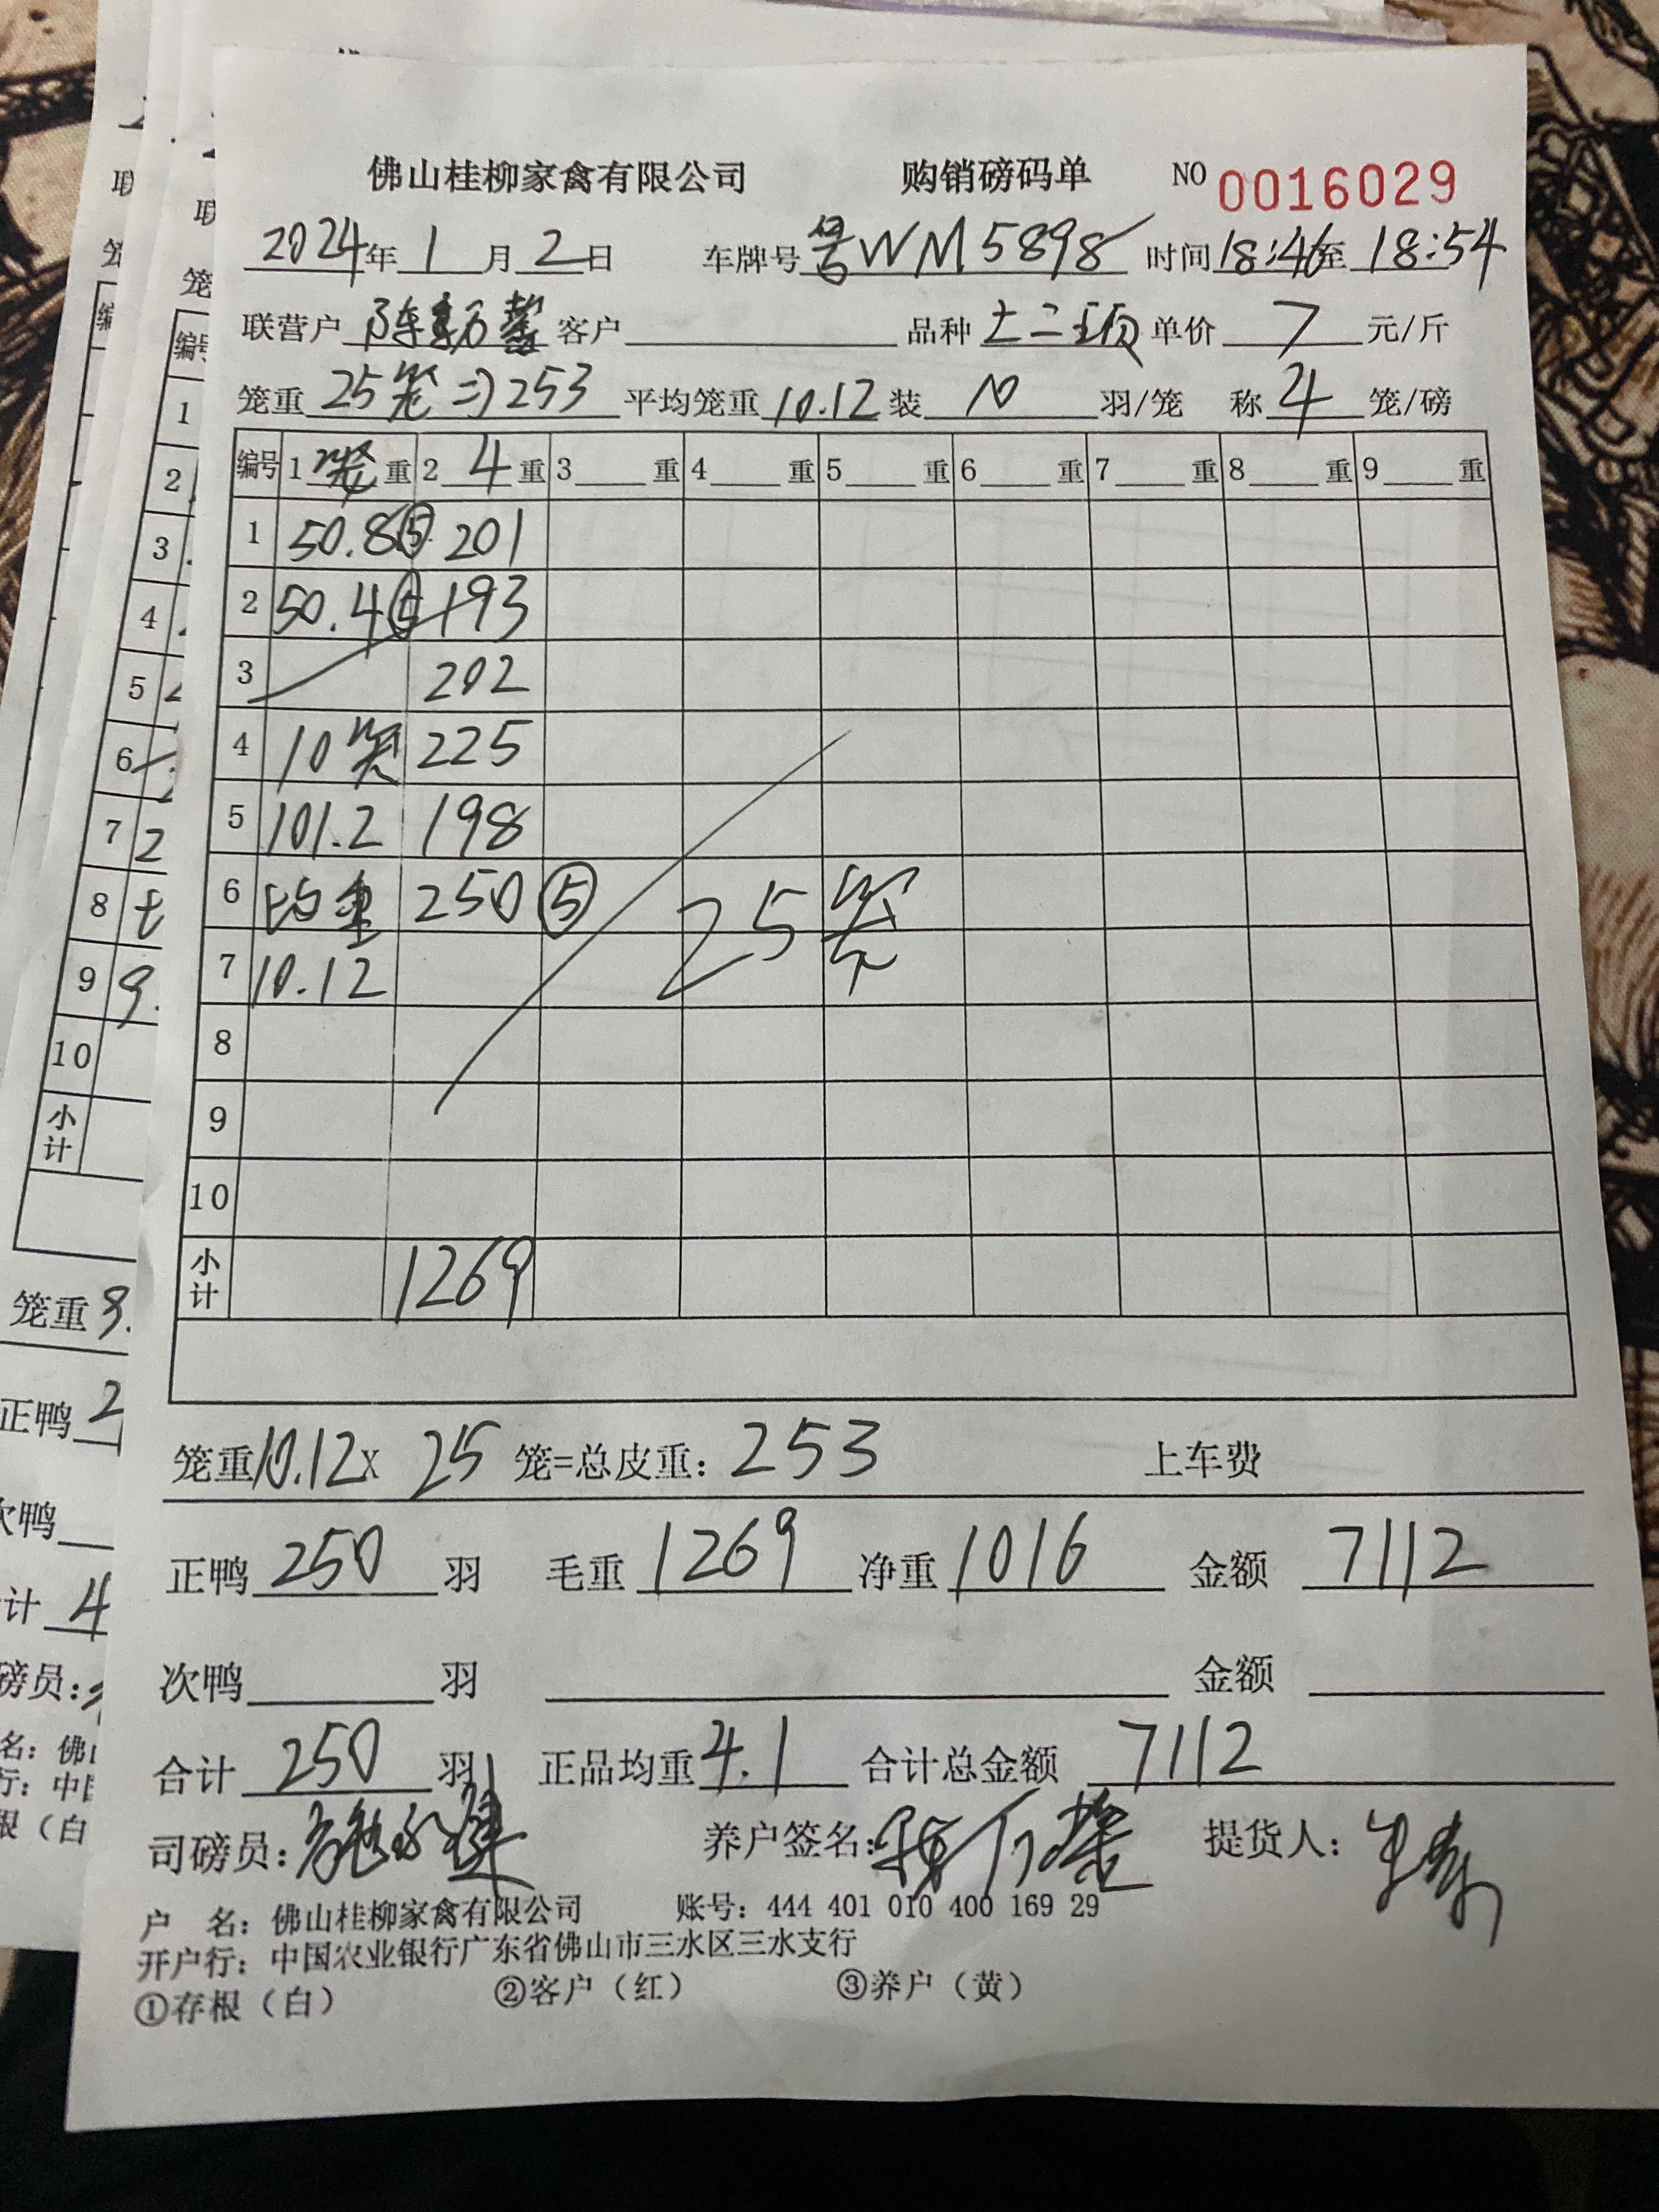 佛山桂柳家禽有限公司 购销磅码单 NO 0016029
2024年1月2日 车牌号 粤WM5898 时间18:46至18:54
联营户 陈 客户 品种 土二 单价 7 元/斤
笼重 25笼⇒253 平均笼重10.12装 10 羽/笼 称 4 笼/磅
编号 1 笼 重 2 4 重 3 重 4 重 5 重 6 重 7 重 8 重 9 重
1 50.8⑤ 201
2 50.4⑤ 193
3 202
4 10笼 225
5 101.2 198
6 均重 250⑤ 25笼
7 10.12
8
9
10
小计 1269
笼重10.12X 25 笼=总皮重：253 上车费
正鸭 250 羽 毛重 1269 净重 1016 金额 7112
次鸭 羽 金额
合计 250 羽 正品均重 4.1 合计总金额 7112
司磅员： 养户签名： 提货人：
户 名：佛山桂柳家禽有限公司 账号：444 401 010 400 169 29
开户行：中国农业银行广东省佛山市三水区三水支行
①存根（白） ②客户（红） ③养户（黄）